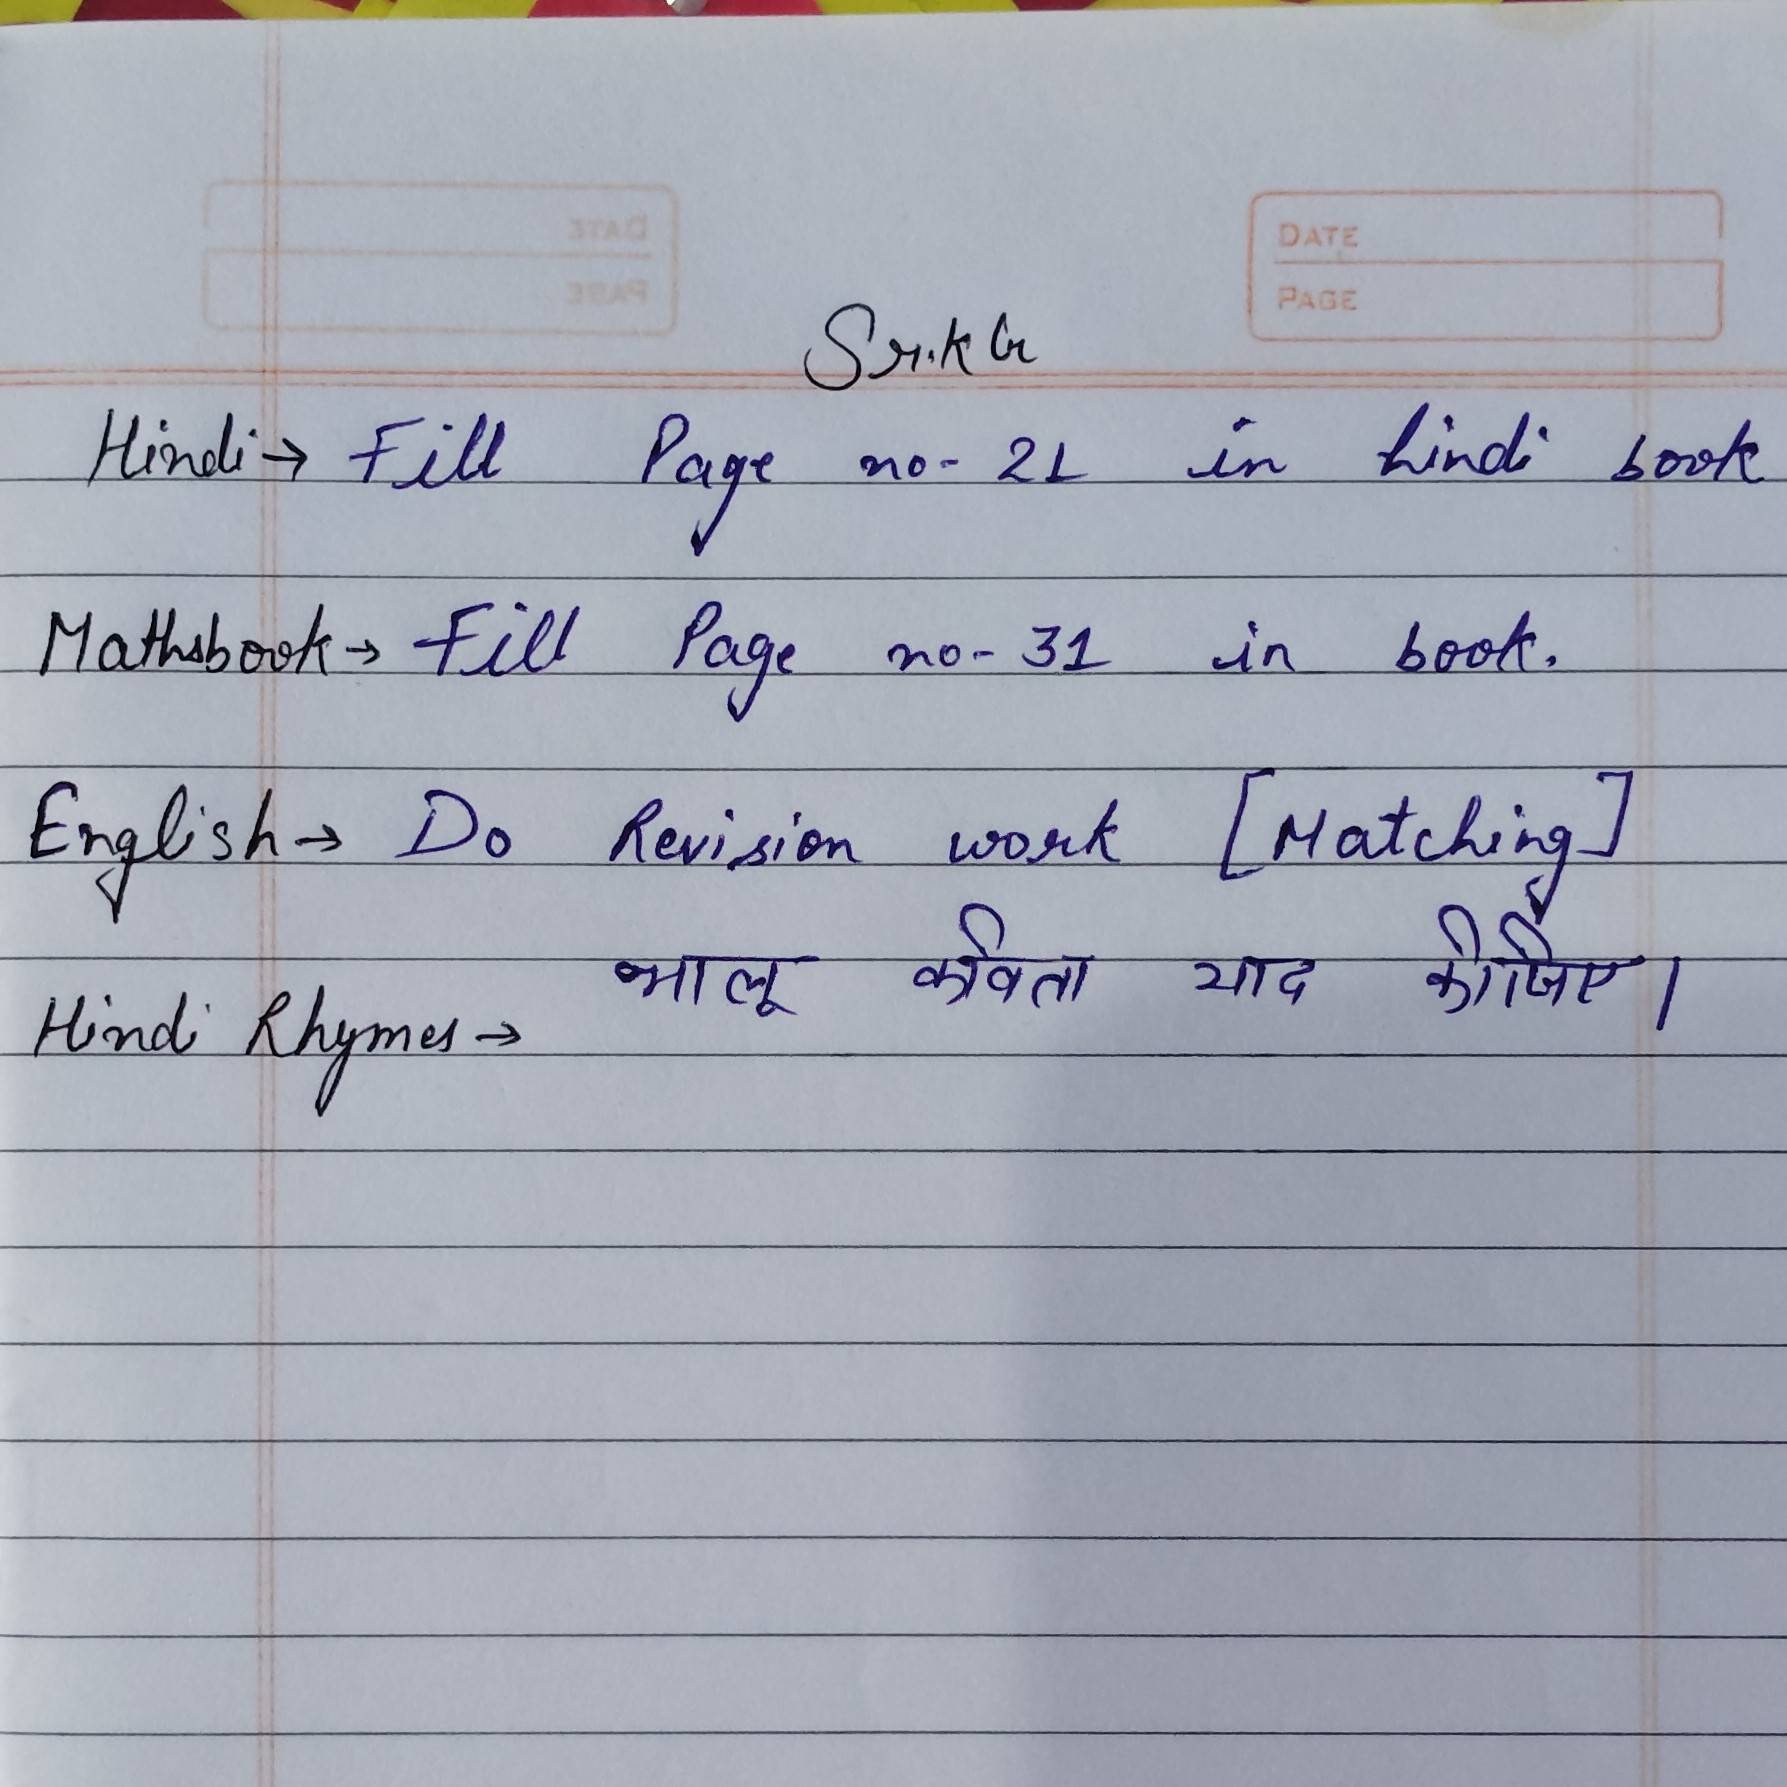 DATE
PAGE
Sr.kG
Hindi → Fill Page no- 21 in hindi book
Mathsbook → Fill Page no- 31 in book.
English → Do Revision work [Matching]
Hindi Rhymes → भालू कविता याद कीजिए।